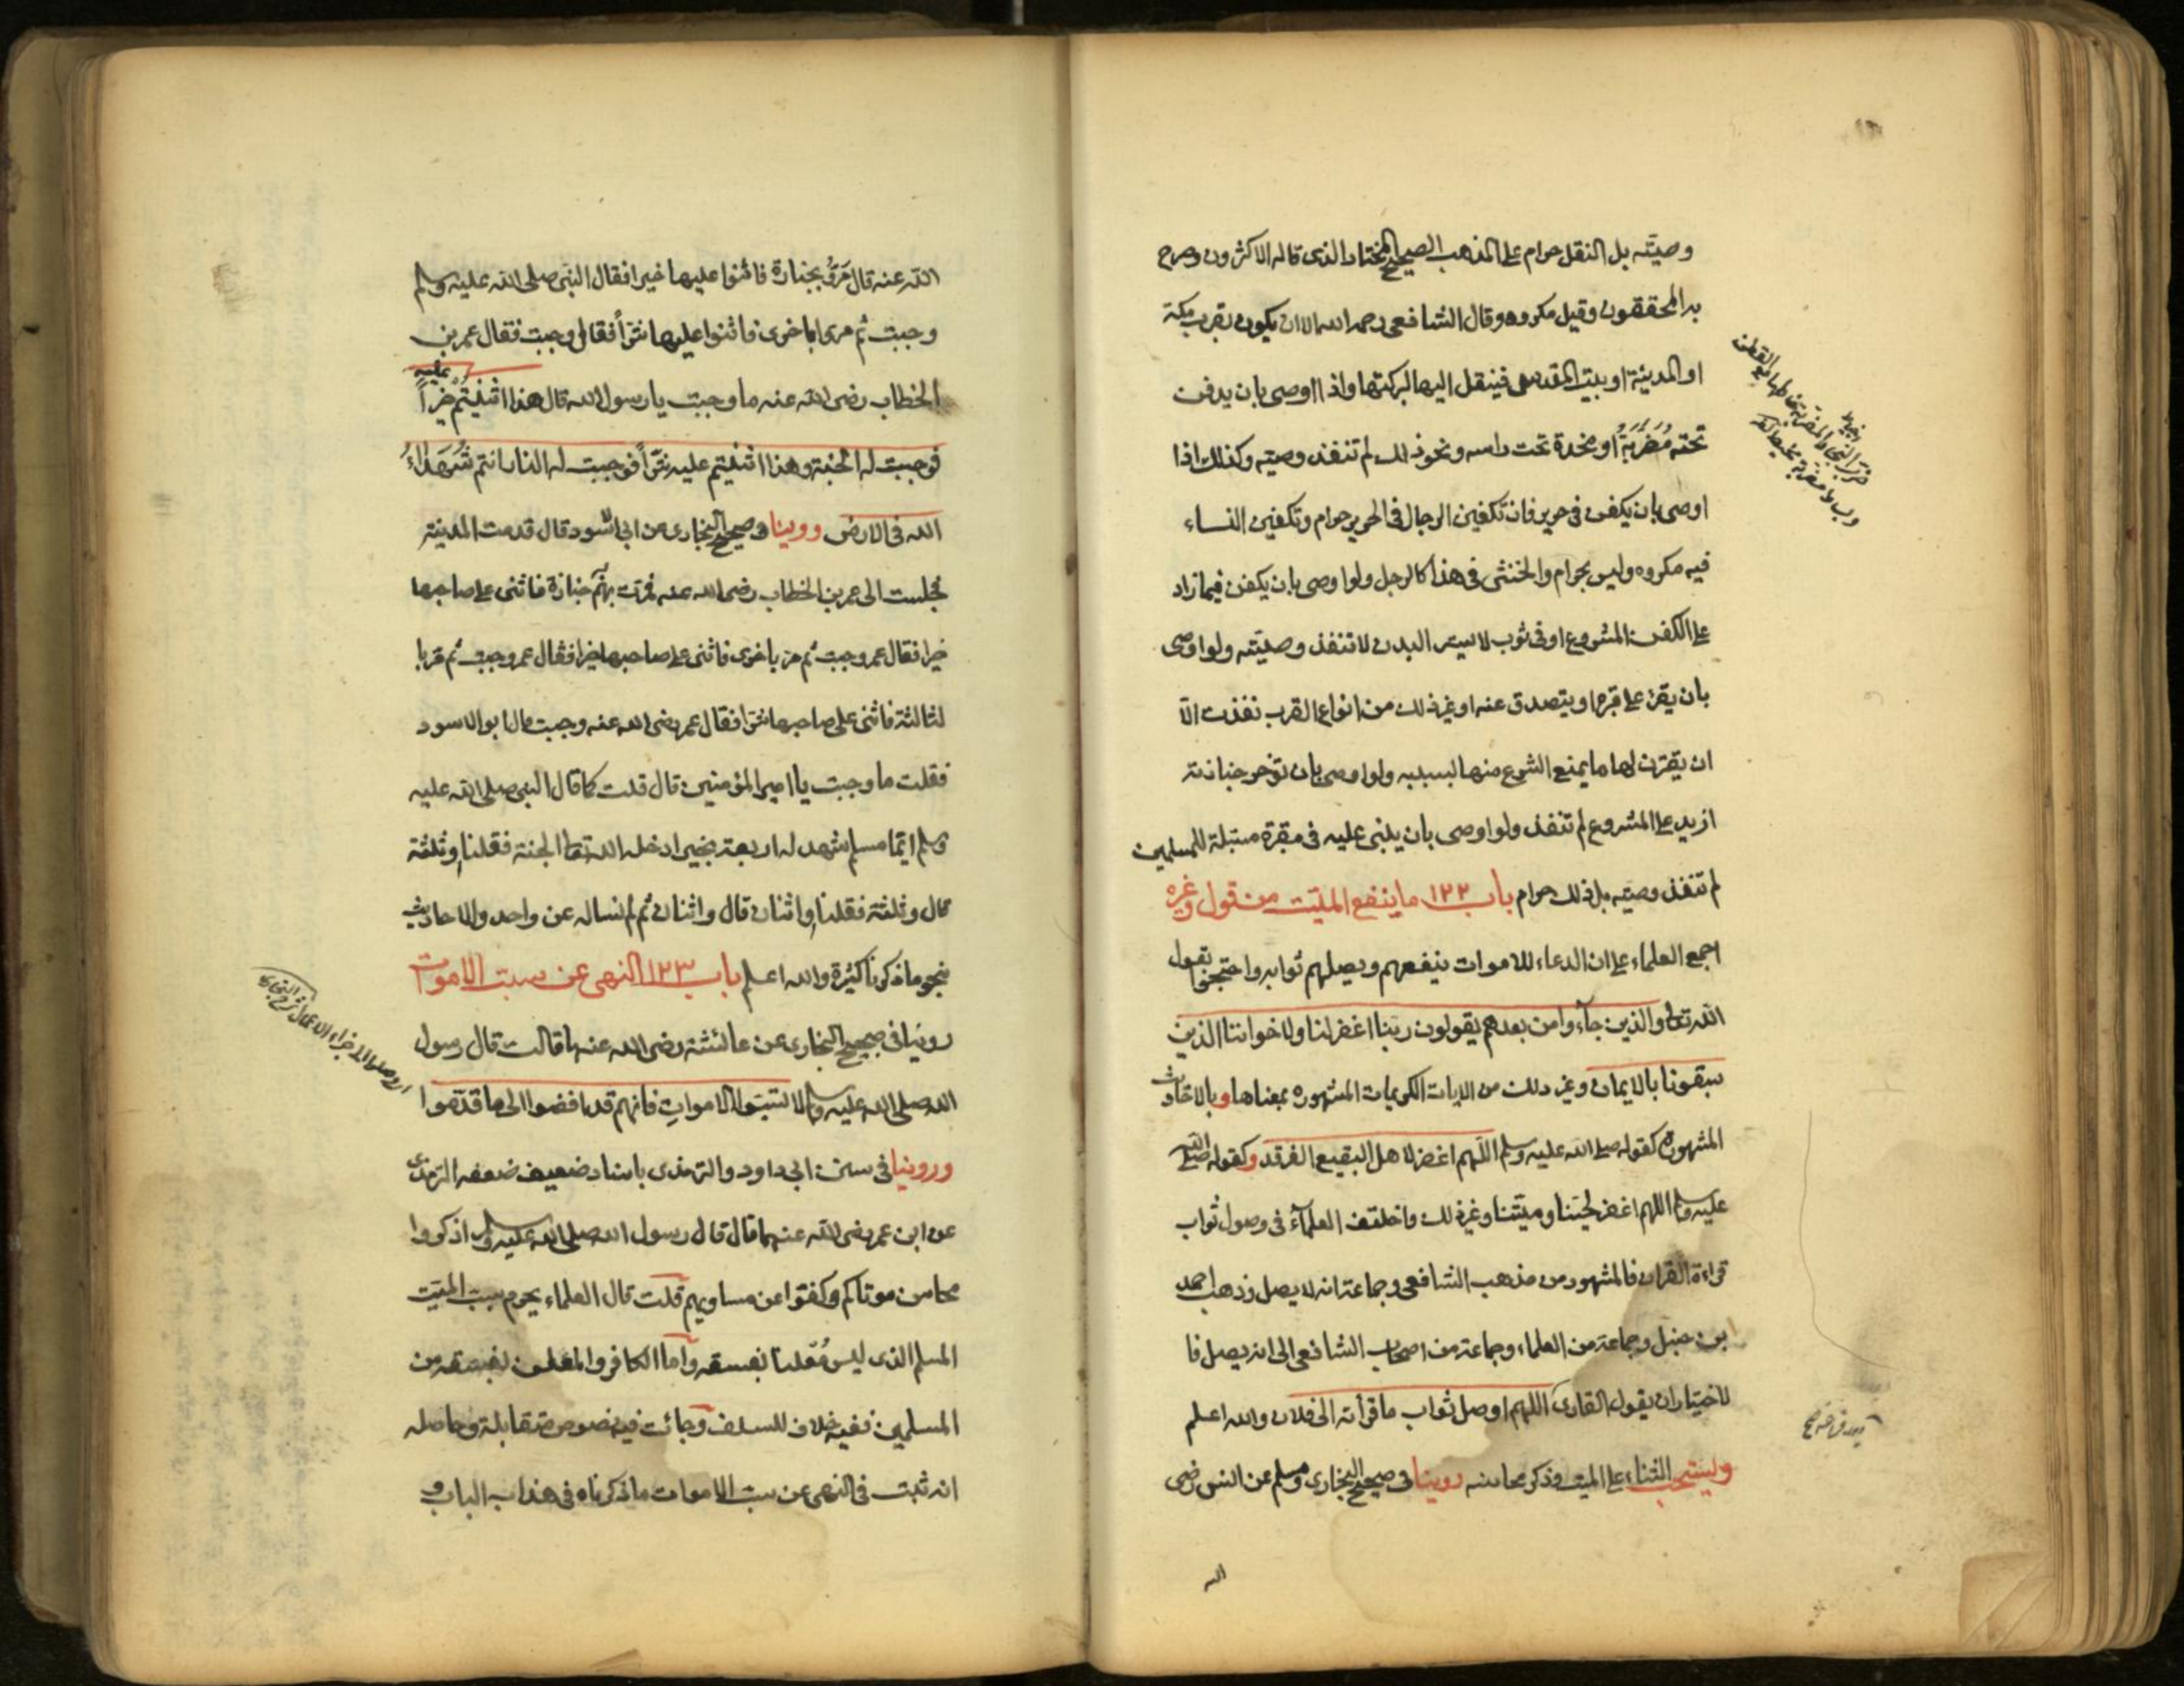 وصيته بل النقل حرام على المذهب الصحيح المختار الذى قاله الاكثرون وصرح
به المحققون وقيل مكروه وقال الشافعى رحمه الله الا ان يكون بقرب مكة
او المدينة او بيت المقدس فينقل اليها لبركتها واذا اوصى بان يدفن
تحته مُضَرَّبَةٌ او مخدة تحت راسه ونحو ذلك لم تنفذ وصيته وكذلك اذا
اوصى بان يكفن فى حرير فان تكفين الرجال فى الحرير حرام وتكفين النساء
فيه مكروه وليس بحرام والخنثى فى هذا كالرجل ولو اوصى بان يكفن فيما زاد
على الكفن المشروع او فى ثوب لا يستر البدن لا تنفذ وصيته ولو اوصى
بان يقرء على قبره او يتصدق عنه او غير ذلك من انواع القرب نفذت الّا
ان يقترن لها ما يمنع الشرع منها بسببه ولو اوصى بان تؤخر جنازته
ازيد على المشروع لم تنفذ ولو اوصى بان يبنى عليه فى مقبرة مسبّلة للمسلمين
لم تنفذ وصيته بل ذلك حرام باب ١٢٢ ما ينفع الميّت من قول وغيره
اجمع العلماء على ان الدعاء للاموات ينفعهم ويصلهم ثوابه واحتجوا بقول
الله تعالى والذين جآءوا من بعدهم يقولون ربنا اغفر لنا ولاخواننا الذين
سبقونا بالايمان وغير ذلك من الايات الكريمات المشهورة بمعناها وبالاحاديث
المشهورة كقوله صلى الله عليه وسلم اللّهم اغفر لاهل البقيع الغرقد وكقوله صلى الله
عليه وسلم اللهم اغفر لحيّنا وميّتنا وغير ذلك واختلف العلمآء فى وصول ثواب
قراءة القران فالمشهور من مذهب الشافعى وجماعة انه لا يصل وذهب احمد
بن حنبل وجماعة من العلماء وجماعة من اصحاب الشافعى الى انه يصل فا
لاختيار ان يقول القارى اللهم اوصل ثواب ما قرأته الى فلان والله اعلم
ويستحب الثناء على الميت وذكر محاسنه روينا فى صحيح البخارى ومسلم عن انس رضى
الله
الله عنه قال مَرّوُ بجنازة فاثنوا عليها خيرا فقال النبى صلى الله عليه وسلم
وجبت ثم مروا باخرى فاثنوا عليها شرّاً فقال وجبت فقال عمر بن
عليه
الخطاب رضى الله عنه ما وجبت يا رسول الله قال هذا اثنيتُمْ خيراً
فوجبت له الجنة وهذا اثنيتم عليه شرّاً فوجبت له النار انتم شُهَدَاءُ
الله فى الارض وروينا فى صحيح البخارى عن ابى الاسود قال قدمت المدينة
فجلست الى عمر بن الخطاب رضى الله عنه فمرّت بهم جنازة فاثنى على صاحبها
خيرا فقال عمر وجبت ثم مر باخرى فاثنى على صاحبها خيرا فقال عمر وجبت ثم مر با
لثالثة فاثنى على صاحبها شرّا فقال عمر رضى الله عنه وجبت قال ابو الاسود
فقلت ما وجبت يا امير المؤمنين قال قلت كما قال النبى صلى الله عليه
وسلم ايّما مسلم شهد له اربعة بخير ادخله الله تعالى الجنة فقلنا وثلثة
قال وثلثة فقلنا واثنان قال واثنان ثم لم نساله عن واحد والاحاديث
بنحو ما ذكرنا كثيرة والله اعلم باب ١٢٣ النهى عن سبّ الاموات
روينا فى صحيح البخارى عن عائشة رضى الله عنها قالت قال رسول
الله صلى الله عليه وسلم لا تسبّوا الاموات فانهم قد افضوا الى ما قدّموا
وروينا فى سنن ابى داود والترمذى باسناد ضعيف ضعفه الترمذى
عن ابن عمر رضى الله عنهما قال قال رسول الله صلى الله عليه وسلم اذكروا
محاسن موتاكم وكفّوا عن مساويهم قلت قال العلماء يحرم سبّ الميّت
المسلم الذى ليس مُعْلنا بفسقه وامّا الكافر والمعلن بفسقه من
المسلمين ففيه خلاف للسلف وجائت فيه نصوص متقابلة وحاصله
انه ثبت فى النهى عن سبّ الاموات ما ذكرناه فى هذا الباب و